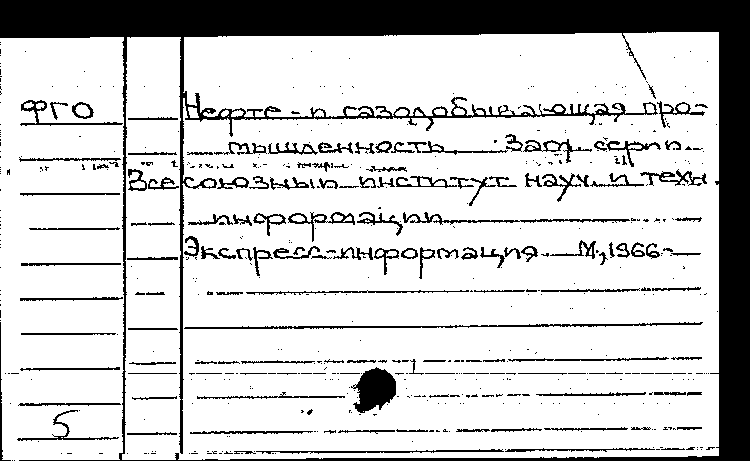 ФГО
Нефте- и газодобывающая про-
мышленность. Загл. серии.
Всесоюзный институт науч. и техн.
информации.
Экспресс-информация. М., 1966-
5